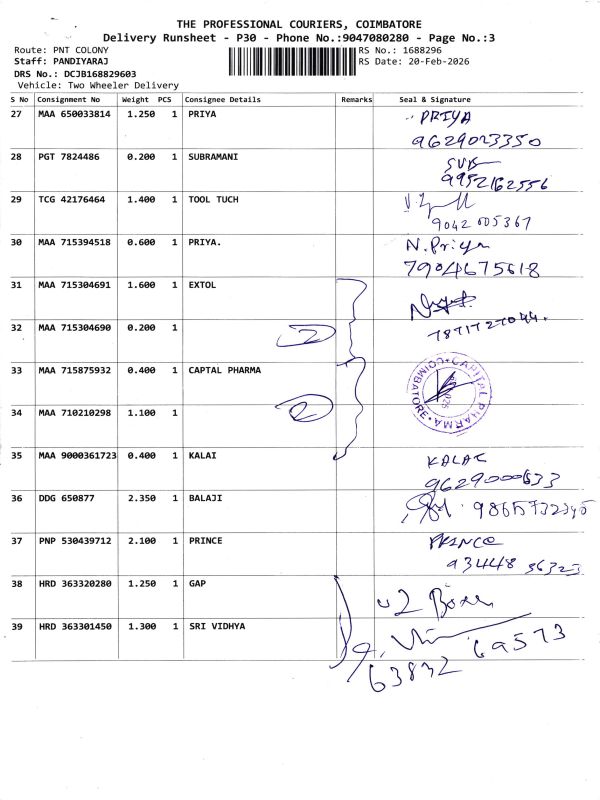 THE PROFESSIONAL COURIERS, COIMBATORE
Delivery Runsheet - P30 - Phone No.:9047080280 - Page No.:3
Route: PNT COLONY RS No.: 1688296
Staff: PANDIYARAJ RS Date: 20-Feb-2026
DRS No.: DCJB168829603
Vehicle: Two Wheeler Delivery
S No Consignment No Weight PCS Consignee Details Remarks Seal & Signature
27 MAA 650033814 1.250 1 PRIYA PRIYA
9629023350
28 PGT 7824486 0.200 1 SUBRAMANI
9952162556
29 TCG 42176464 1.400 1 TOOL TUCH
9042 005367
30 MAA 715394518 0.600 1 PRIYA. N. Priya
7904675618
31 MAA 715304691 1.600 1 EXTOL
32 MAA 715304690 0.200 1 2
7871727044.
33 MAA 715875932 0.400 1 CAPTAL PHARMA
CAPITAL PHARMA COIMBATORE
34 MAA 710210298 1.100 1 2
35 MAA 9000361723 0.400 1 KALAI KALAI
9629000633
36 DDG 650877 2.350 1 BALAJI 9865732345
37 PNP 530439712 2.100 1 PRINCE PRINCE
93448 36323
38 HRD 363320280 1.250 1 GAP 2 Boxes
39 HRD 363301450 1.300 1 SRI VIDHYA
63832 69573